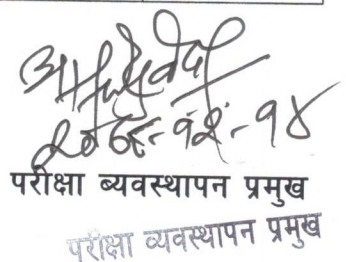 २०७८-१२-१४
परीक्षा ब्यवस्थापन प्रमुख
परीक्षा व्यवस्थापन प्रमुख